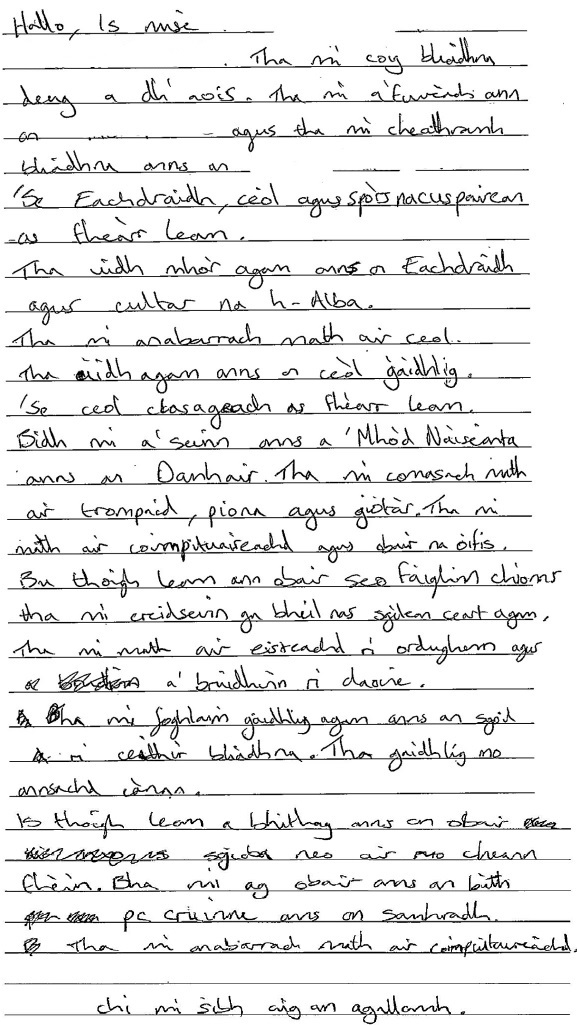 Hallo, Is mise
. Tha mi còig bliadhna
deug a dh' aois. Tha mi a' fuireach ann
an - agus tha mi cheathramh
bliadhna anns an
'Se Eachdraidh, ceòl agus spòrs nacuspairean
as fheàrr leam.
Tha ùidh mhòr agam anns an Eachdraidh
agus cultar na h-Alba.
Tha mi anabarrach math air ceol.
Tha ùidh agam anns an ceòl gàidhlig.
'Se ceol clasagach as fheàrr leam.
Bidh mi a' seinn anns a 'Mhòd Nàiseanta
anns an Damhair. Tha mi comasach math
air trompaid, piona agus giotàr. Tha mi
math air coimpituaireachd agus obair na òifis.
Bu thoigh leam ann obair seo fàighinn chionns
tha mi creidsinn gu bheil nas sgilean ceart agam,
Tha mi math air eisteachd ri ordughean agus
a' bruidhinn ri daoine.
Bha mi foghlaim gàidhlig agam anns an sgoil
ri ceithir bliàdhna. Tha gaidhlig mo
annsachd cànan.
Is thoigh leam a bhithag anns an obair
sgioba neo air mo cheann
fhèin. Bha mi ag obair anns an bùth
pc cruinne anns an samhradh.
Tha mi anabarrach math air coimpiutaireachd.
chi mi sibh aig an agallamh.